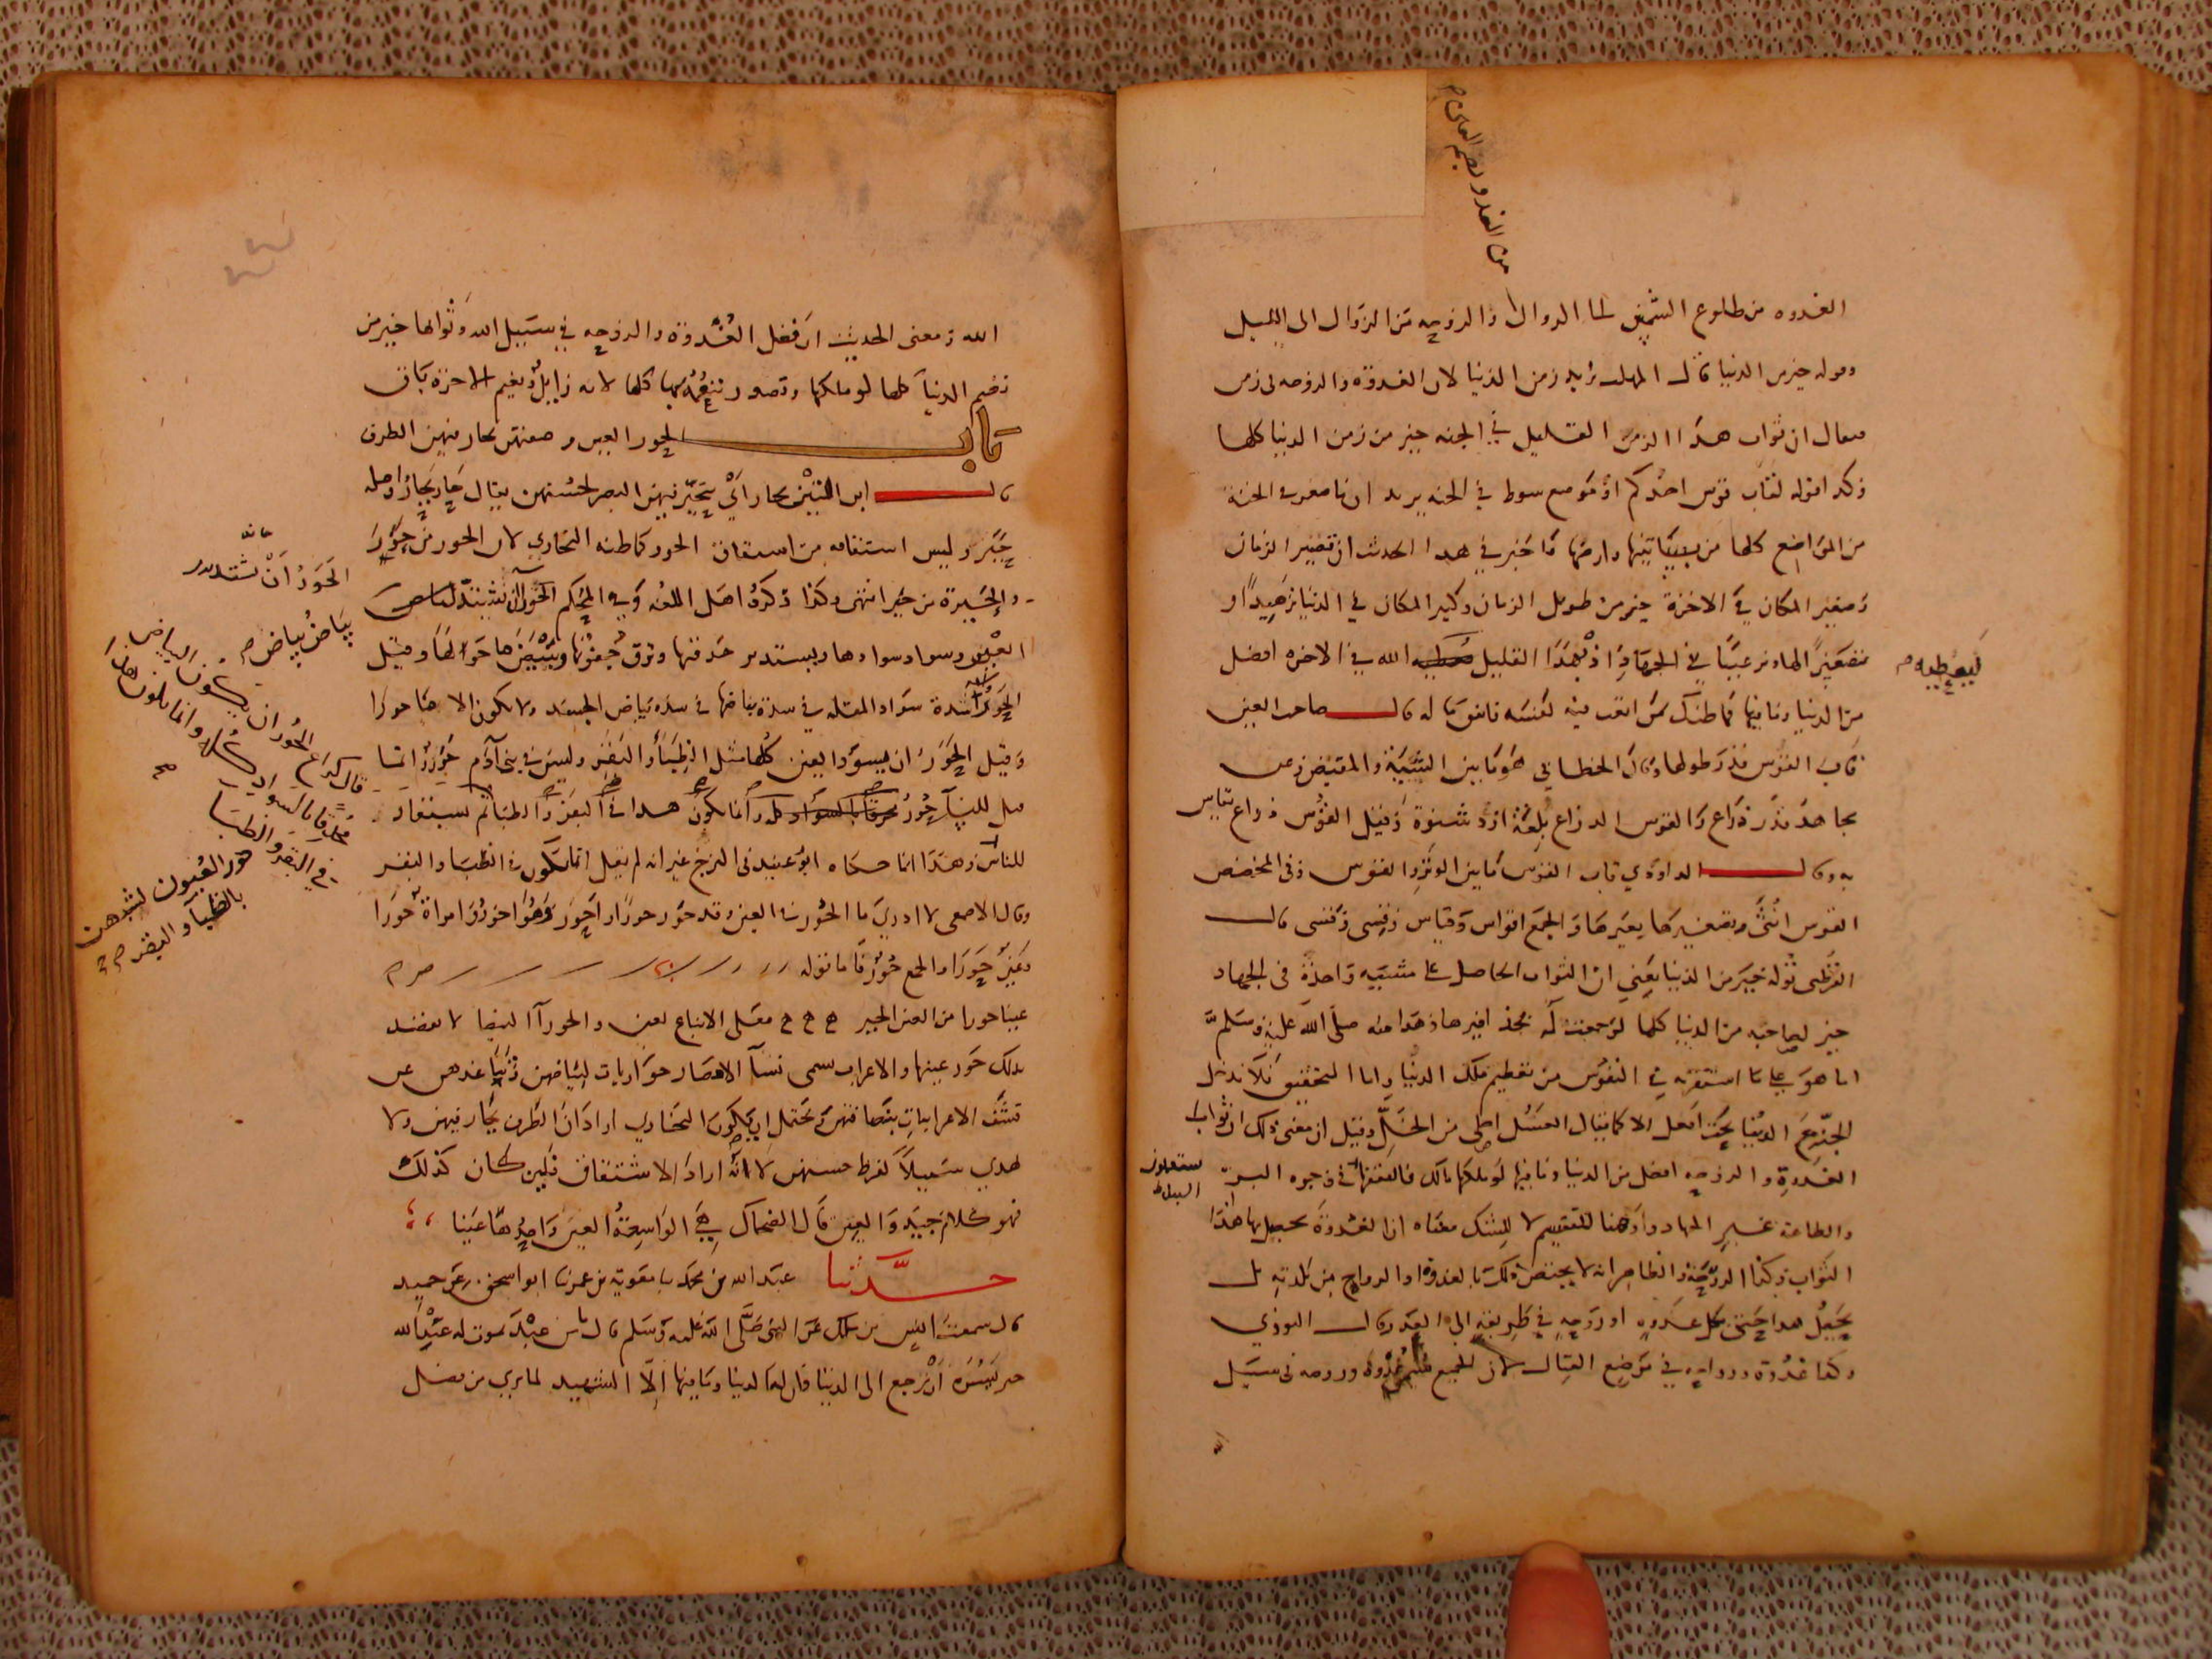 الغدوه من طلوع الشمس الى الزوال والروحه من الزوال الى الليل
وقوله خير من الدنيا قال المهلب يريد زمن الدنيا لان الغدوة والروحه في زمن
فيقال ان ثواب هذا الزمن القليل في الجنه خير من زمن الدنيا كلها
وكذا قوله لقاب قوس احدكم او موضع سوط في الجنه يريد ان ما صغر في الجنة
من المواضع كلها من بساتينها وارضها فاخبر في هذا الحديث ان قصير الزمان
وصغير المكان في الاخرة خير من طويل الزمان وكبير المكان في الدنيا تزهيدا و
تصغيرا لها وترغيبا في الجهاد اذ بهذا القليل يعطيه الله في الاخره افضل
من الدنيا وما فيها فما ظنك بمن اتعب فيه نفسه وانفق ماله قال صاحب العين
قاب القوس قدر طولها وقال الخطابي هو ما بين السية والمقبض وعن
مجاهد قدر ذراع والقوس الذراع بلغة ازد شنوة وقيل القوس ذراع يقاس
به وقال الداودي قاب القوس ما بين الوتر والقوس وفي المخصص
القوس انثى وتصغيرها بغير هاء والجمع اقواس وقياس وقسي وقسي قال
القرطبي قوله خير من الدنيا يعني ان الثواب الحاصل على مشية واحدة في الجهاد
خير لصاحبه من الدنيا كلها لو جمعت له بحذافيرها وهذا منه صلى الله عليه وسلم
انما هو على ما استقر في النفوس من تعظيم ملك الدنيا واما التحقيق فلا تدخل
الجنة مع الدنيا تحت افعل الا كما يقال العسل احلى من الخل وقيل ان معنى ذلك ان ثواب
الغدوة والروحه افضل من الدنيا وما فيها لو ملكها مالك فانفقها في وجوه البر
والطاعة غير الجهاد واو هنا للتقسيم لا للشك معناه ان الغدوة يحصل بها هذا
الثواب وكذا الروحة والظاهر انه لا يختص ذلك بالغدوة والرواح من بلدته بل
يحصل هذا حتى بكل غدوه او روحه في طريقه الى العدو قال النووي
وكذا غدوة وروحه في موضع القتال لان الجميع يسمى غدوة وروحه في سبيل
ليعطيه
الله ومعنى الحديث ان فضل الغدوة والروحه في سبيل الله وثوابها خير من
نعيم الدنيا كلها لو ملكها وتصور تنعمه بها كلها لانه زايل ونعيم الاخرة باق
باب الحور العين وصفتهن يحار فيهن الطرف
قال ابن التين يحار اي يتحير فيهن البصر لحسنهن يقال حار يحار واصله
حير وليس اشتقاقه من اشتقاق الحور كما ظنه البخاري لان الحور من حور
والحيرة من حير انتهى وكذا ذكره اهل اللغه وفي المحكم الحور ان يشتد بياض
العين وسواد سوادها ويستدير حدقتها وترق جفونها ويبيض ما حواليها وقيل
الحور شدة سواد المقله في شدة بياضها في شدة بياض الجسد ولا يكون الادما حورا
وقيل الحور ان يسود العين كلها مثل الظباء والبقر وليس في بني آدم حور وانما
قيل للنساء حور
للناس وهذا انما حكاه ابو عبيد في البرج غير انه لم يقل انما يكون في الظبا والبقر
وقال الاصمعي لا ادري ما الحور في العين وقد حور حورا واحور وهو احور وامراة حورا
وعين حورا والجمع حور فاما قوله
عينا حورا من العين الحير فعلى الاتباع لعين والحورآ البيضا لا يقصد
بذلك حور عينها والاعراب تسمي نسآ الامصار حواريات لبياضهن وتباعدهن عن
قشف الاعرابيات بنظافتهن ويحتمل ان يكون البخاري اراد ان الطرف يحار فيهن ولا
يهدي سبيلا لفرط حسنهن لا انه اراد الاشتقاق فلين كان كذلك
فهو كلام جيد والعين قال الضحاك هي الواسعة العين واحدها عينا
حدثنا عبد الله بن محمد نا معوية بن عمرنا ابو اسحق عن حميد
قال سمعت انس بن ملك عن النبي صلى الله عليه وسلم قال ما من عبد يموت له عند الله
خير يسره ان يرجع الى الدنيا وان له الدنيا وما فيها الا الشهيد لما يرى من فضل
الحور ان يشتد
بياض بياض
قال كراع الحور ان يكون البياض
محدقا بالسواد كله وانما يكون هذا
في البقر والظبا
حور العيون لشبههن
بالظبآ والبقر